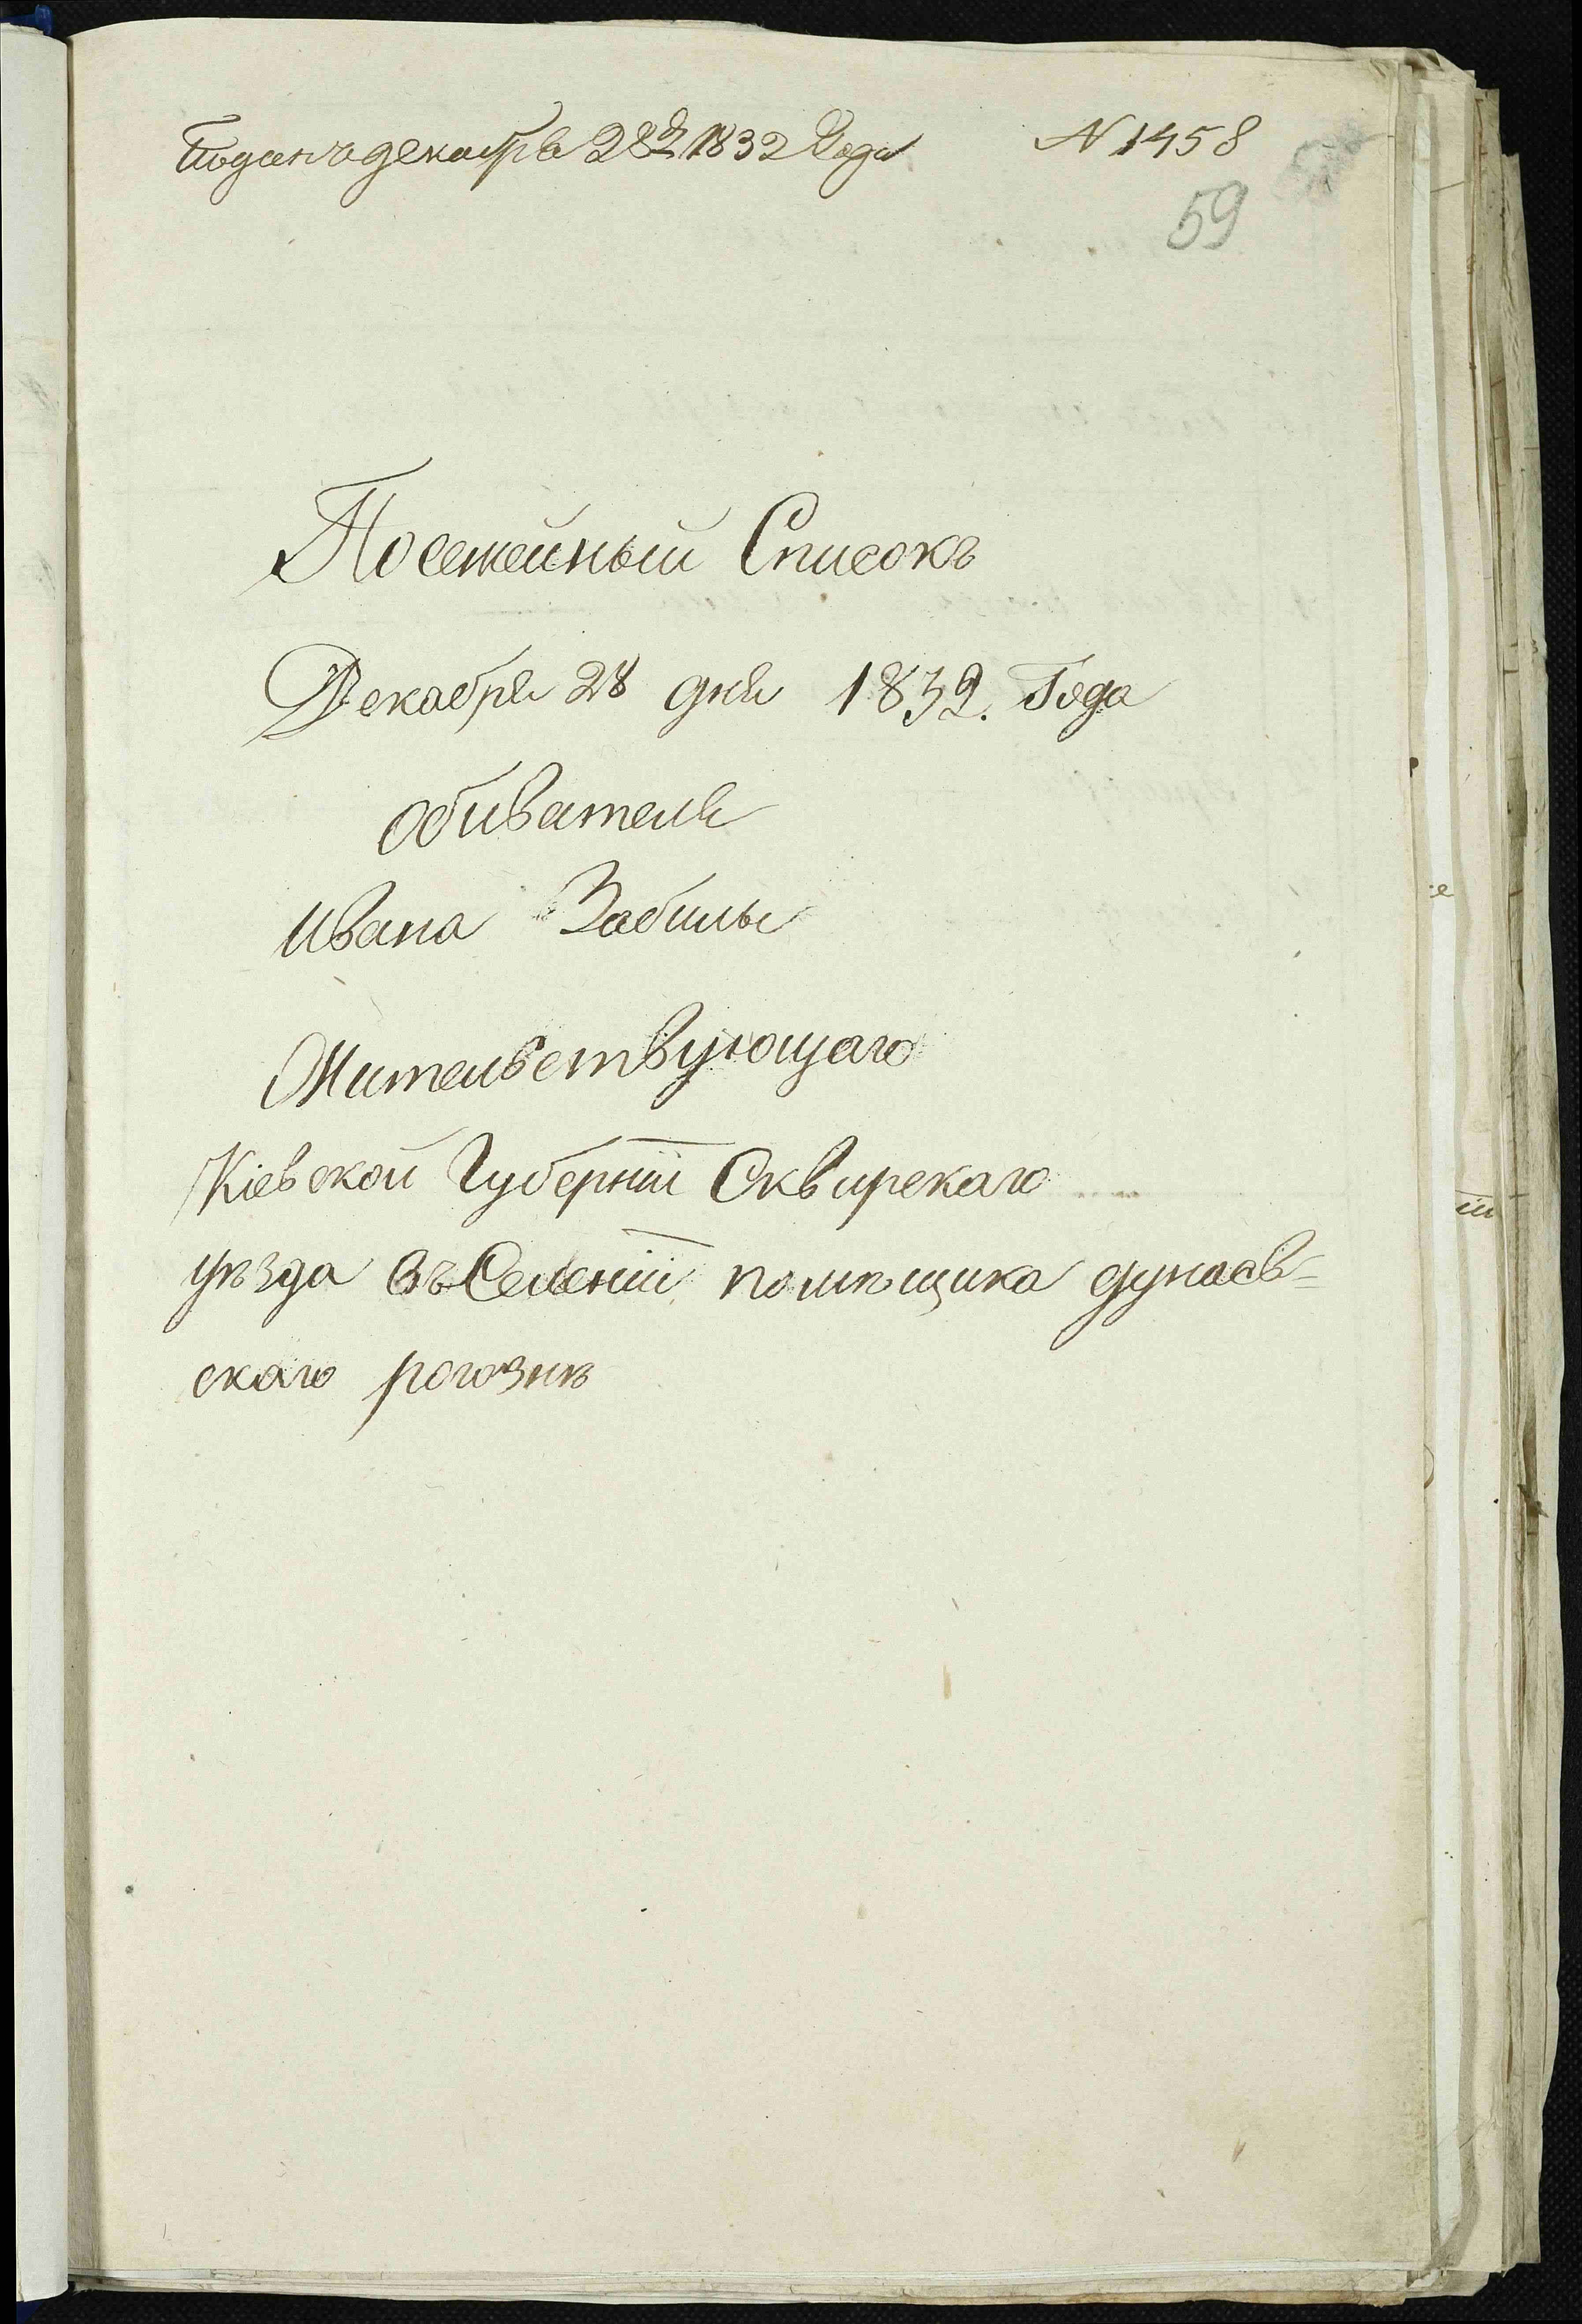 Поданъ декабря 28го 1832 Года N 1458
59
Посемейный Списокъ
Декабря 28 дня 1832. Года
обивателя
Ивана Забилы
Жительствующаго
Кіевской Губерніи Сквирскаго
уѣзда въ Селеніи помѣщика дунаев=
скаго рогознѣ